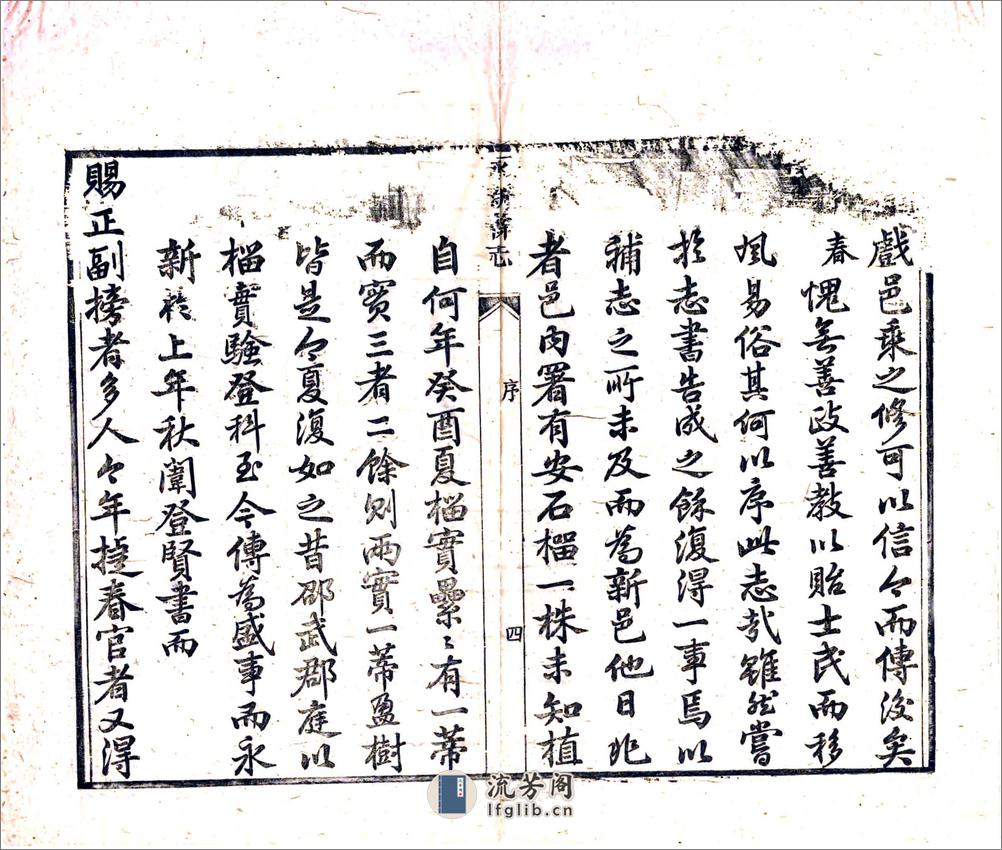 戲邑乘之修可以信今而傳後矣
春愧無善政善教以貽士民而移
風易俗其何以序此志哉雖然嘗
於志書告成之餘復得一事焉以
補志之所未及而為新邑他日兆
者邑內署有安石榴一株未知植
永新縣志
序
四
自何年癸酉夏榴實纍〻有一蒂
而實三者二餘則兩實一蒂盈樹
皆是今夏復如之昔邵武郡庭以
榴實驗登科至今傳為盛事而永
新於上年秋闈登賢書而
賜正副榜者多人今年捷春官者又得
流芳阁
lfglib.cn